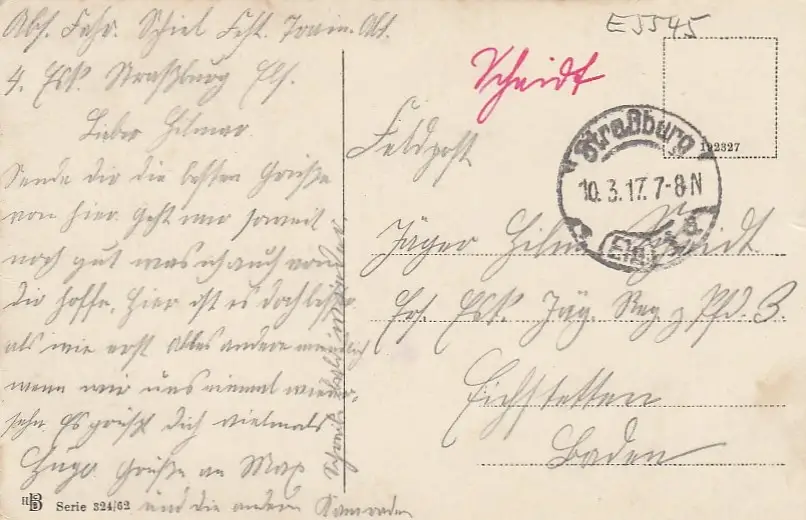 Abs. Fahr. Schiel Fest. Train. Abt.
4. Esk. Straßburg Els.
Lieber Hilmar.
Sende dir die besten Grüße
von hier. Geht mir soweit
noch gut was ich auch von
dir hoffe. Hier ist es doch besser
als wie erst Alles andere mündlich
wenn wir uns einmal wieder-
sehn Es grüßt Dich vielmals
Hugo Grüße an Max
und die andern Kameraden
Schreib bald wieder
HB Serie 324/62
E5545
Scheidt
Feldpost
192327
Straßburg
10.3.17. 7-8 N
(Els.)
Jäger Hilmar Scheidt
Ers. Esk. Jäg. Reg. z. Pfd. 3.
Eichstetten
Baden